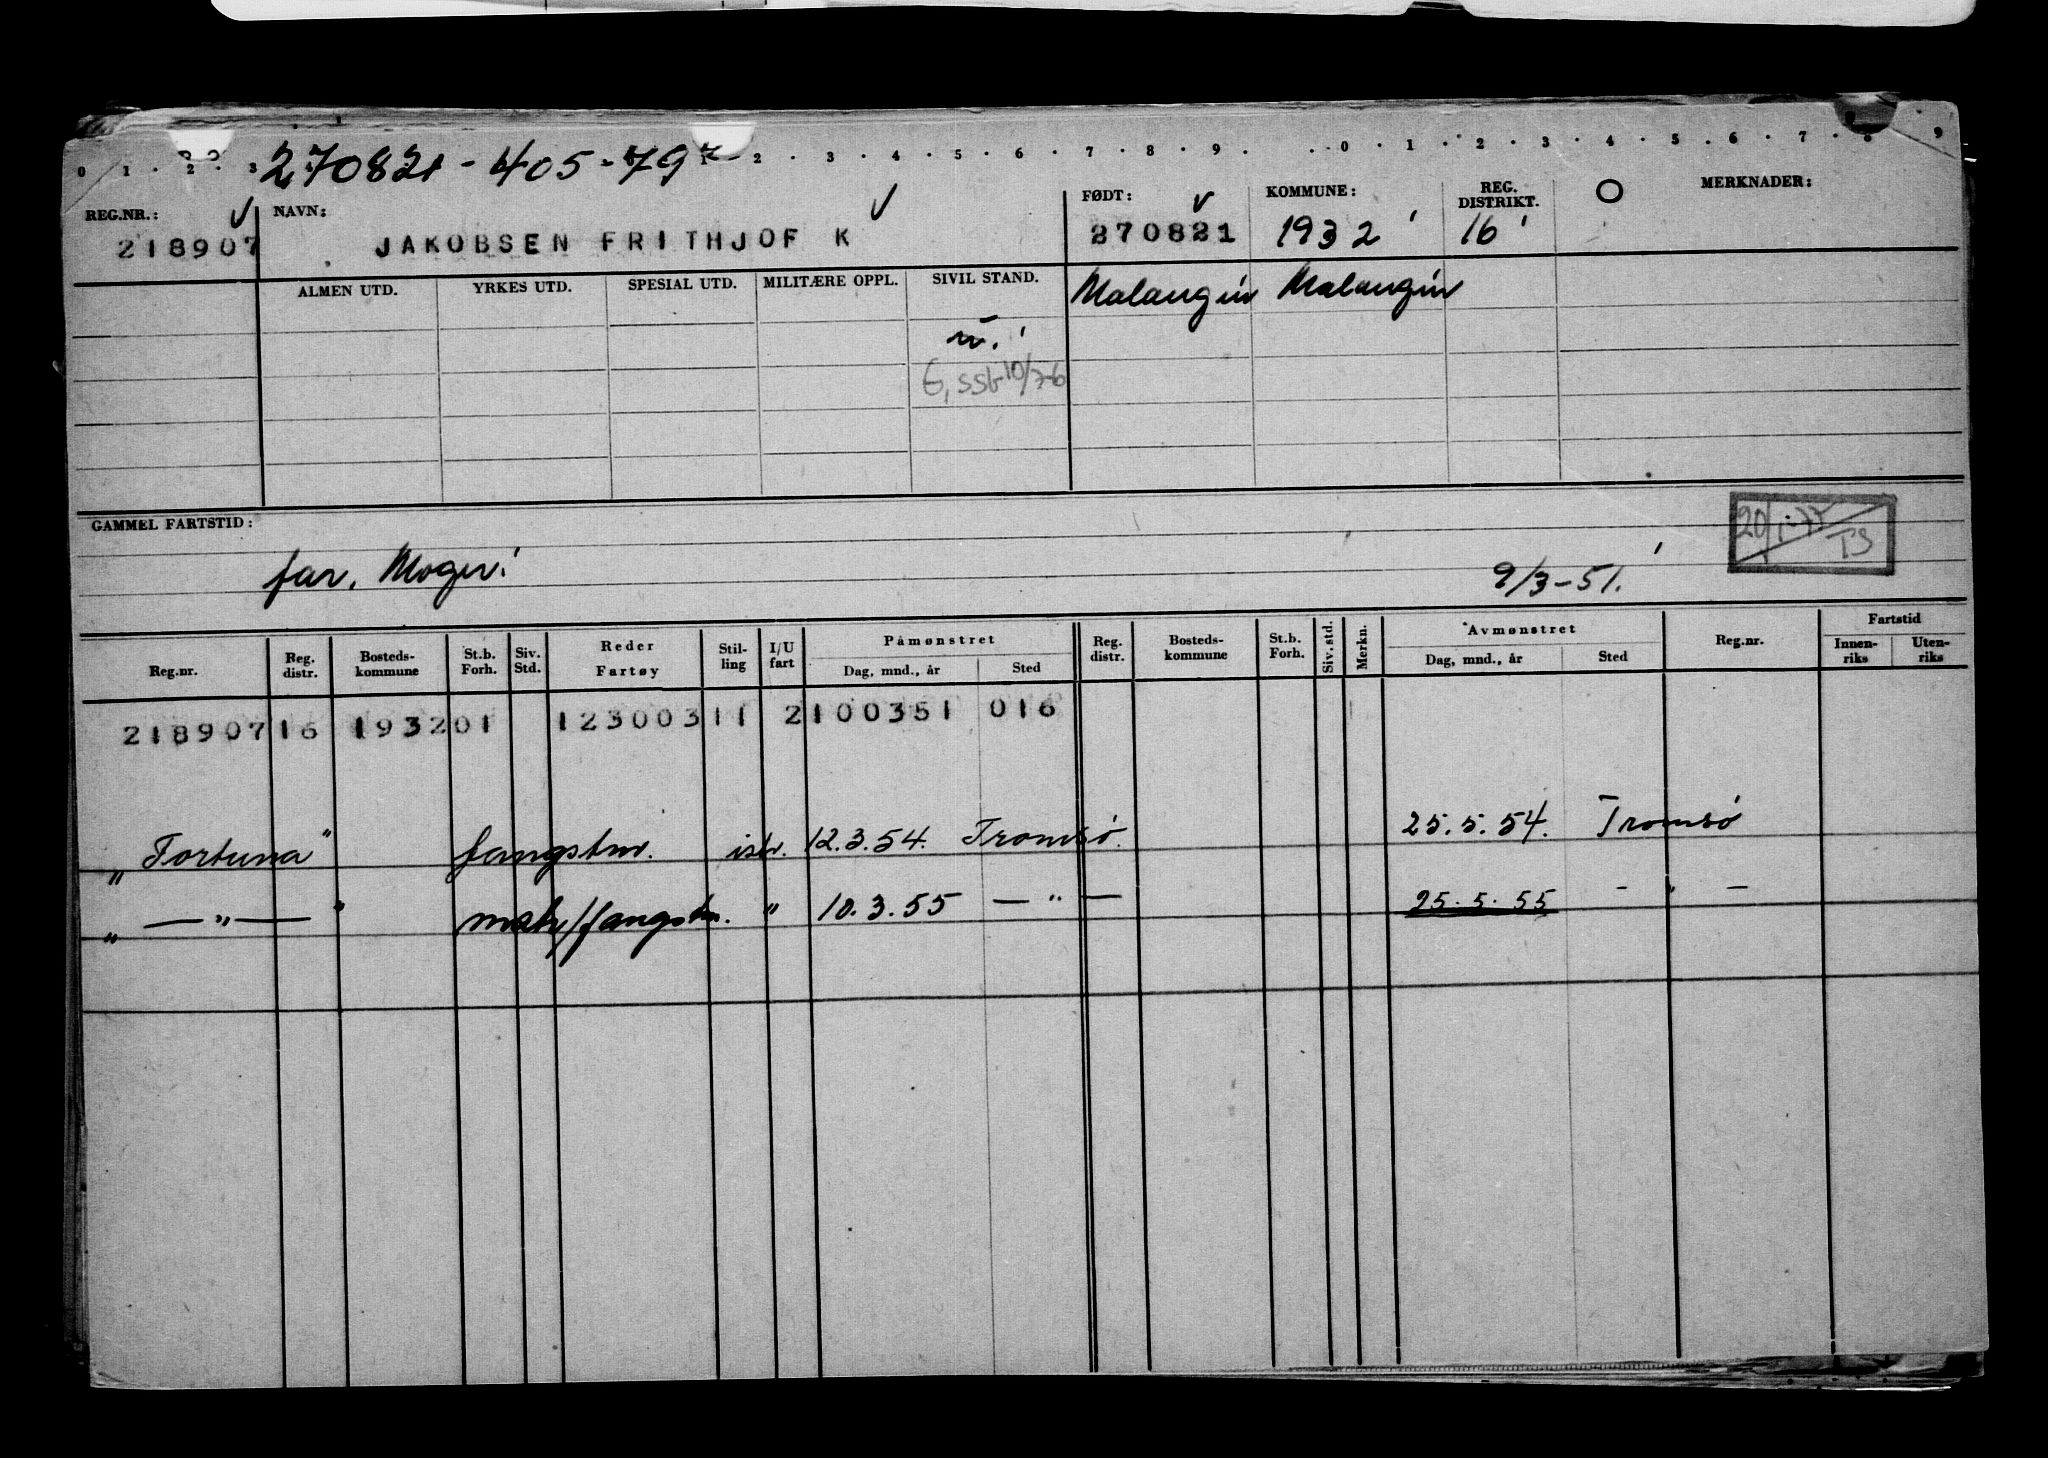 270821 - 405 - 797
0 1 . 2 . 3 1 . 2 . 3 . 4 . 5 . 6 . 7 . 8 . 9 . . . 0 . 1 . 2 . 3 . 4 . 5 . 6 . 7 . 8 . 9
REG.NR.: NAVN: FØDT: KOMMUNE: REG. DISTRIKT. MERKNADER:
218907 JAKOBSEN FRITHJOF K 270821 1932 16
ALMEN UTD. YRKES UTD. SPESIAL UTD. MILITÆRE OPPL. SIVIL STAND. Malangen Malangen
u.
G, SSB 10/76
GAMMEL FARTSTID:
20/1-77 TS
far. Moger.
9/3-51.
Reg.nr. Reg. distr. Bosteds-kommune St.b. Forh. Siv. Std. Reder Fartøy Stil-ling I/U fart Påmønstret Dag, mnd., år Sted Reg. distr. Bosteds-kommune St.b. Forh. Siv. std. Merkn. Avmønstret Dag, mnd., år Sted Reg.nr. Fartstid Innen-riks Uten-riks
218907 16 1932 01 123003 11 2 100351 016
„Fortuna" fangstm. ish. 12.3.54. Tromsø. 25.5.54. Tromsø
„ — " — " matr/fangstm. " 10.3.55 — " — 25.5.55 - " -